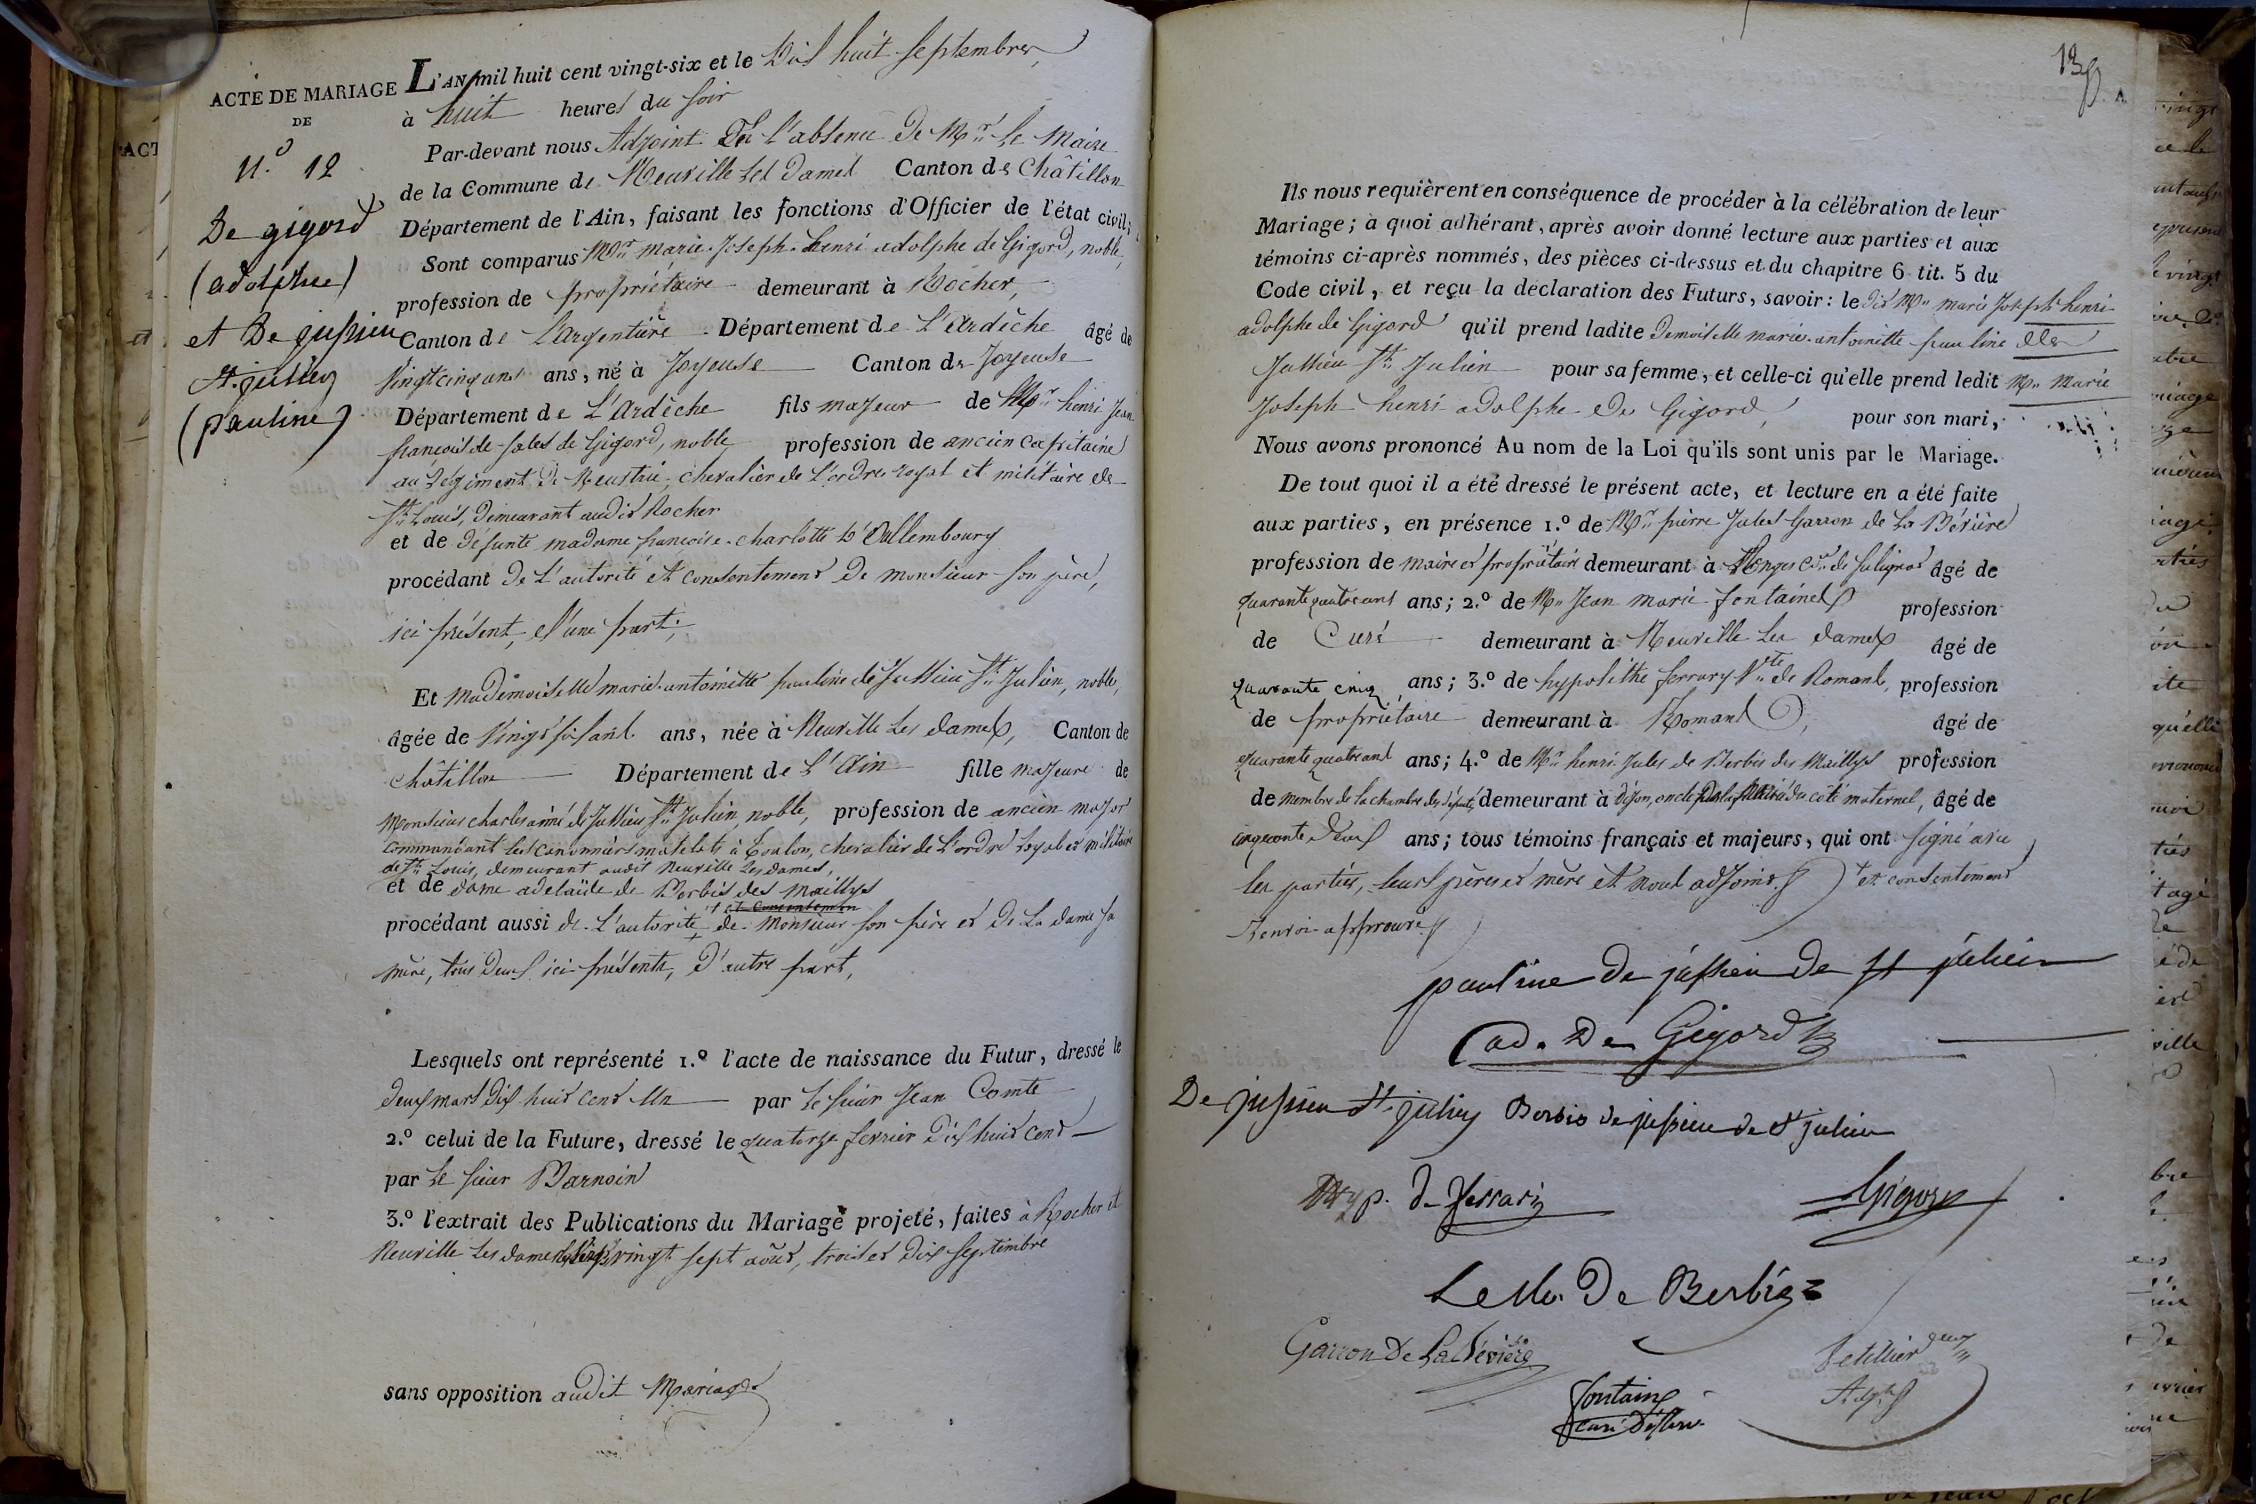 ACTE DE MARIAGE
DE
N.º 12
De gigord
(adolphe)
et De jussieu
St. julien
(pauline)
L'AN mil huit cent vingt-six et le Dix huit septembre,
à huit heures du soir
Par-devant nous Adjoint En l'absence De Mr. Le Maire
de la Commune de Neuville Les Dames Canton de Châtillon
Département de l'Ain, faisant les fonctions d'Officier de l'état civil;
Sont comparus Mr. marie-Joseph-henri adolphe de Gigord, noble,
profession de propriétaire demeurant à Rocher,
Canton de L'argentière Département de L'Ardèche âgé de
Vingt cinq ans ans, né à Joyeuse Canton de Joyeuse
Département de L'Ardèche fils majeur de Mr. henri Jean
françois de-sales de Gigord, noble profession de ancien capitaine
au régiment de Neustrie, chevalier de L'ordre royal et militaire de
St. Louis, demeurant audit Rocher
et de défunte madame françoise-charlotte
procédant De L'autorité et consentement De monsieur son père,
ici présent, d'une part;
Et mademoiselle marie-antoinette pauline de Jussieu St. Julien, noble,
âgée de Vingt six ans ans, née à Neuville Les Dames, Canton de
Châtillon Département de L'Ain fille majeure de
Monsieur charles aimé de Jussieu St. Julien, noble, profession de ancien major
commandant les canonniers matelots à Toulon, chevalier de L'ordre royal et militaire
de St. Louis, demeurant audit Neuville Les Dames,
et de dame adelaïde de Berbis des Maillys
procédant aussi de L'autorité + de Monsieur son père et De La dame sa
mère, tous Deux ici présents, D'autre part,
Lesquels ont représenté 1.º l'acte de naissance du Futur, dressé le
Deux mars dix huit cent Un par le sieur Jean Comte
2.º celui de la Future, dressé le quatorze février Dix huit cent
par le sieur Barnoin
3.º l'extrait des Publications du Mariage projeté, faites à Rocher et
Neuville Les Dames vingt sept août, trois et dix septembre
sans opposition audit Mariage.
Ils nous requièrent en conséquence de procéder à la célébration de leur
Mariage; à quoi adhérant, après avoir donné lecture aux parties et aux
témoins ci-après nommés, des pièces ci-dessus et du chapitre 6 tit. 5 du
Code civil, et reçu la déclaration des Futurs, savoir: le dit Mr. marie Joseph henri
adolphe de Gigord qu'il prend ladite demoiselle marie-antoinette pauline de
Jussieu St. Julien pour sa femme, et celle-ci qu'elle prend ledit Mr. Marie
Joseph henri adolphe de Gigord, pour son mari,
Nous avons prononcé Au nom de la Loi qu'ils sont unis par le Mariage.
De tout quoi il a été dressé le présent acte, et lecture en a été faite
aux parties, en présence 1.º de Mr. pierre Jules Garron de La Bévière
profession de maire et propriétaire demeurant à âgé de
quarante quatre ans ans; 2.º de Mr. Jean marie fontaine profession
de Curé demeurant à Neuville Les Dames âgé de
quarante cinq ans; 3.º de hypolithe ferrary Cte. de Romans, profession
de propriétaire demeurant à Romans, âgé de
quarante quatre ans ans; 4.º de Mr. henri Jules de Berbis des Maillys profession
de membre de la chambre des députés demeurant à Dijon, oncle du côté maternel, âgé de
cinquante deux ans; tous témoins français et majeurs, qui ont signé avec
les parties, leurs pères et mère et nous adjoint. + et consentement
Renvoi approuvé
pauline de jussieu de st julien
ad. De Gigord
De jussieu St. julien Berbis de jussieu de St julien
hyp. de ferrari
Gigord
Le Mr. De Berbis
Garron De La Bévière
fontaine
curé